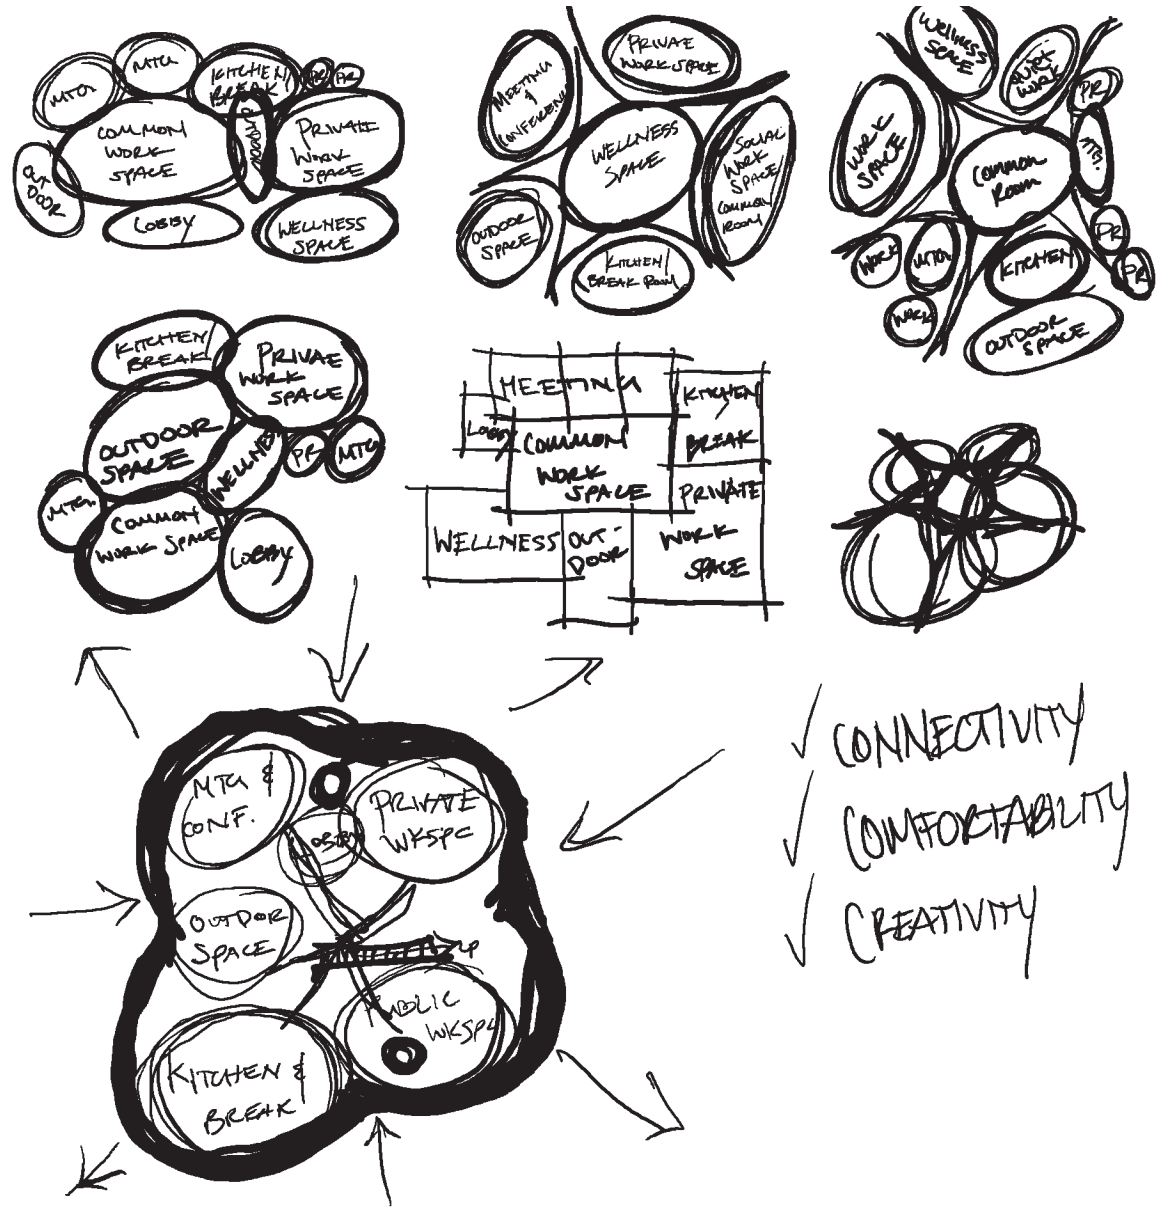 MTG
MTG
KITCHEN/
BREAK
PR
PR
COMMON
WORK
SPACE
OUTDOOR
PRIVATE
WORK
SPACE
OUT
DOOR
LOBBY
WELLNESS
SPACE
MEETING
&
CONFERENCE
PRIVAE
WORK SPACE
WELLNESS
SPACE
SOCIAL
WORK
SPACE/
COMMON
ROOM
OUTDOOR
SPACE
KITCHEN/
BREAK ROOM
WELLNESS
SPACE
QUIET
WORK
PR
WORK
SPACE
COMMON
ROOM
MTG.
PR
PR
WORK
MTG
WORK
KITCHEN
OUTDOOR
SPACE
KITCHEN/
BREAK
PRIVAE
WORK
SPACE
OUTDOOR
SPACE
WELLNESS
PR
MTG
MTG.
COMMON
WORK SPACE
LOBBY
MEETING
KITCHEN/
BREAK
LOBBY
COMMON
WORK
SPACE
PRIVATE
WORK
SPACE
WELLNESS
OUT-
DOOR
MTG &
CONF.
PRIVATE
WKSPC
LOBBY
OUTDOOR
SPACE
UP
PUBLIC
WKSPC
KITCHEN &
BREAK
✓ CONNECTIVITY
✓ COMFORTABILITY
✓ CREATIVITY